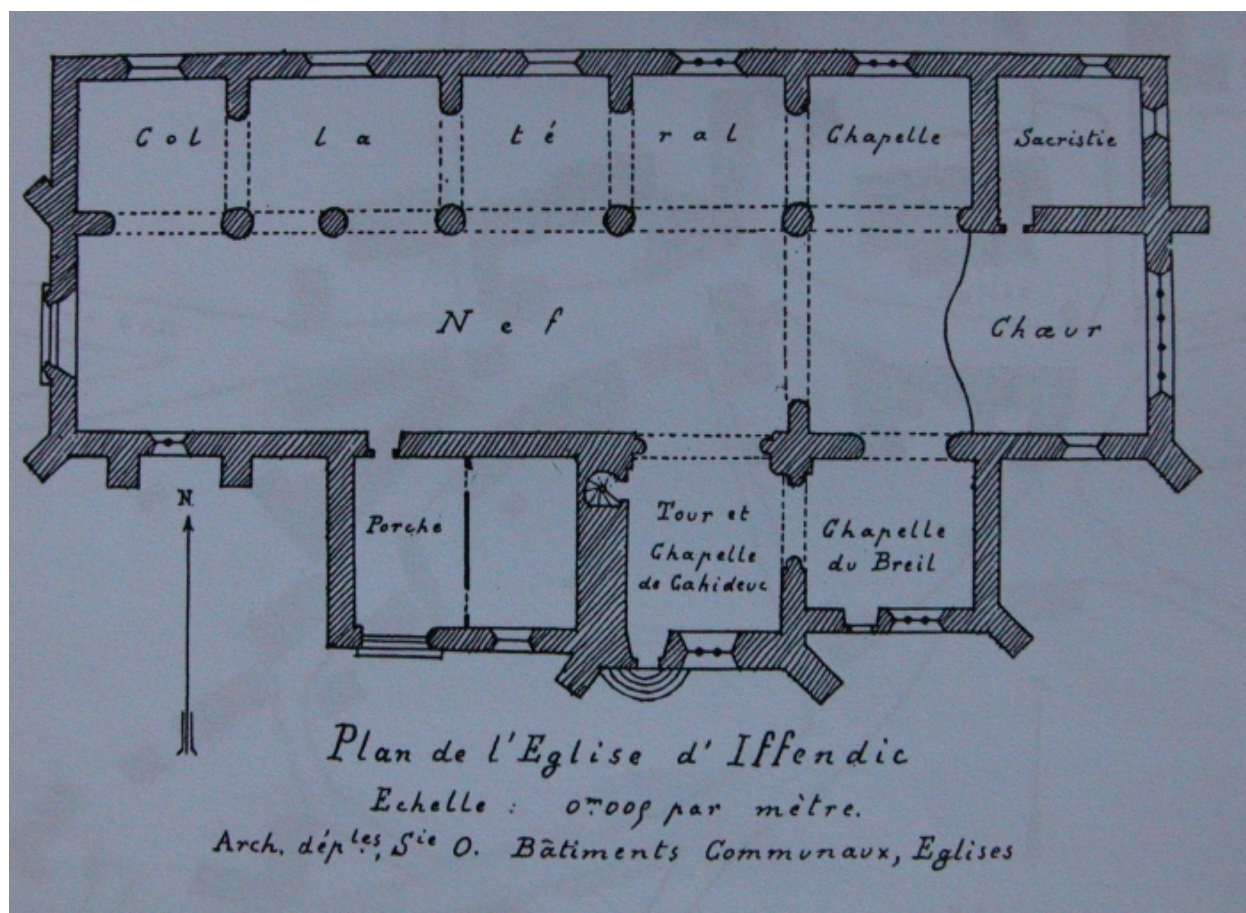 Col la té ral Chapelle Sacristie
Nef
Chœur
N
Porche
Tour et
Chapelle
de Cahideuc
Chapelle
du Breil
Plan de l'Eglise d'Iffendic
Echelle : 0m005 par mètre.
Arch. dép.les, Sie O. Bâtiments Communaux, Eglises